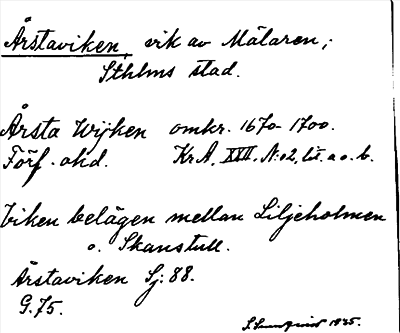 Årstaviken, vik av Mälaren,
Sthlms stad.
Årsta Wijken omkr. 1670-1700.
Förf. okd. KrA. XVII. N:o2, lit. a o. b.
Viken belägen mellan Liljeholmen
o. Skanstull.
Årstaviken Sj: 88.
G. 75.
S. 1925.